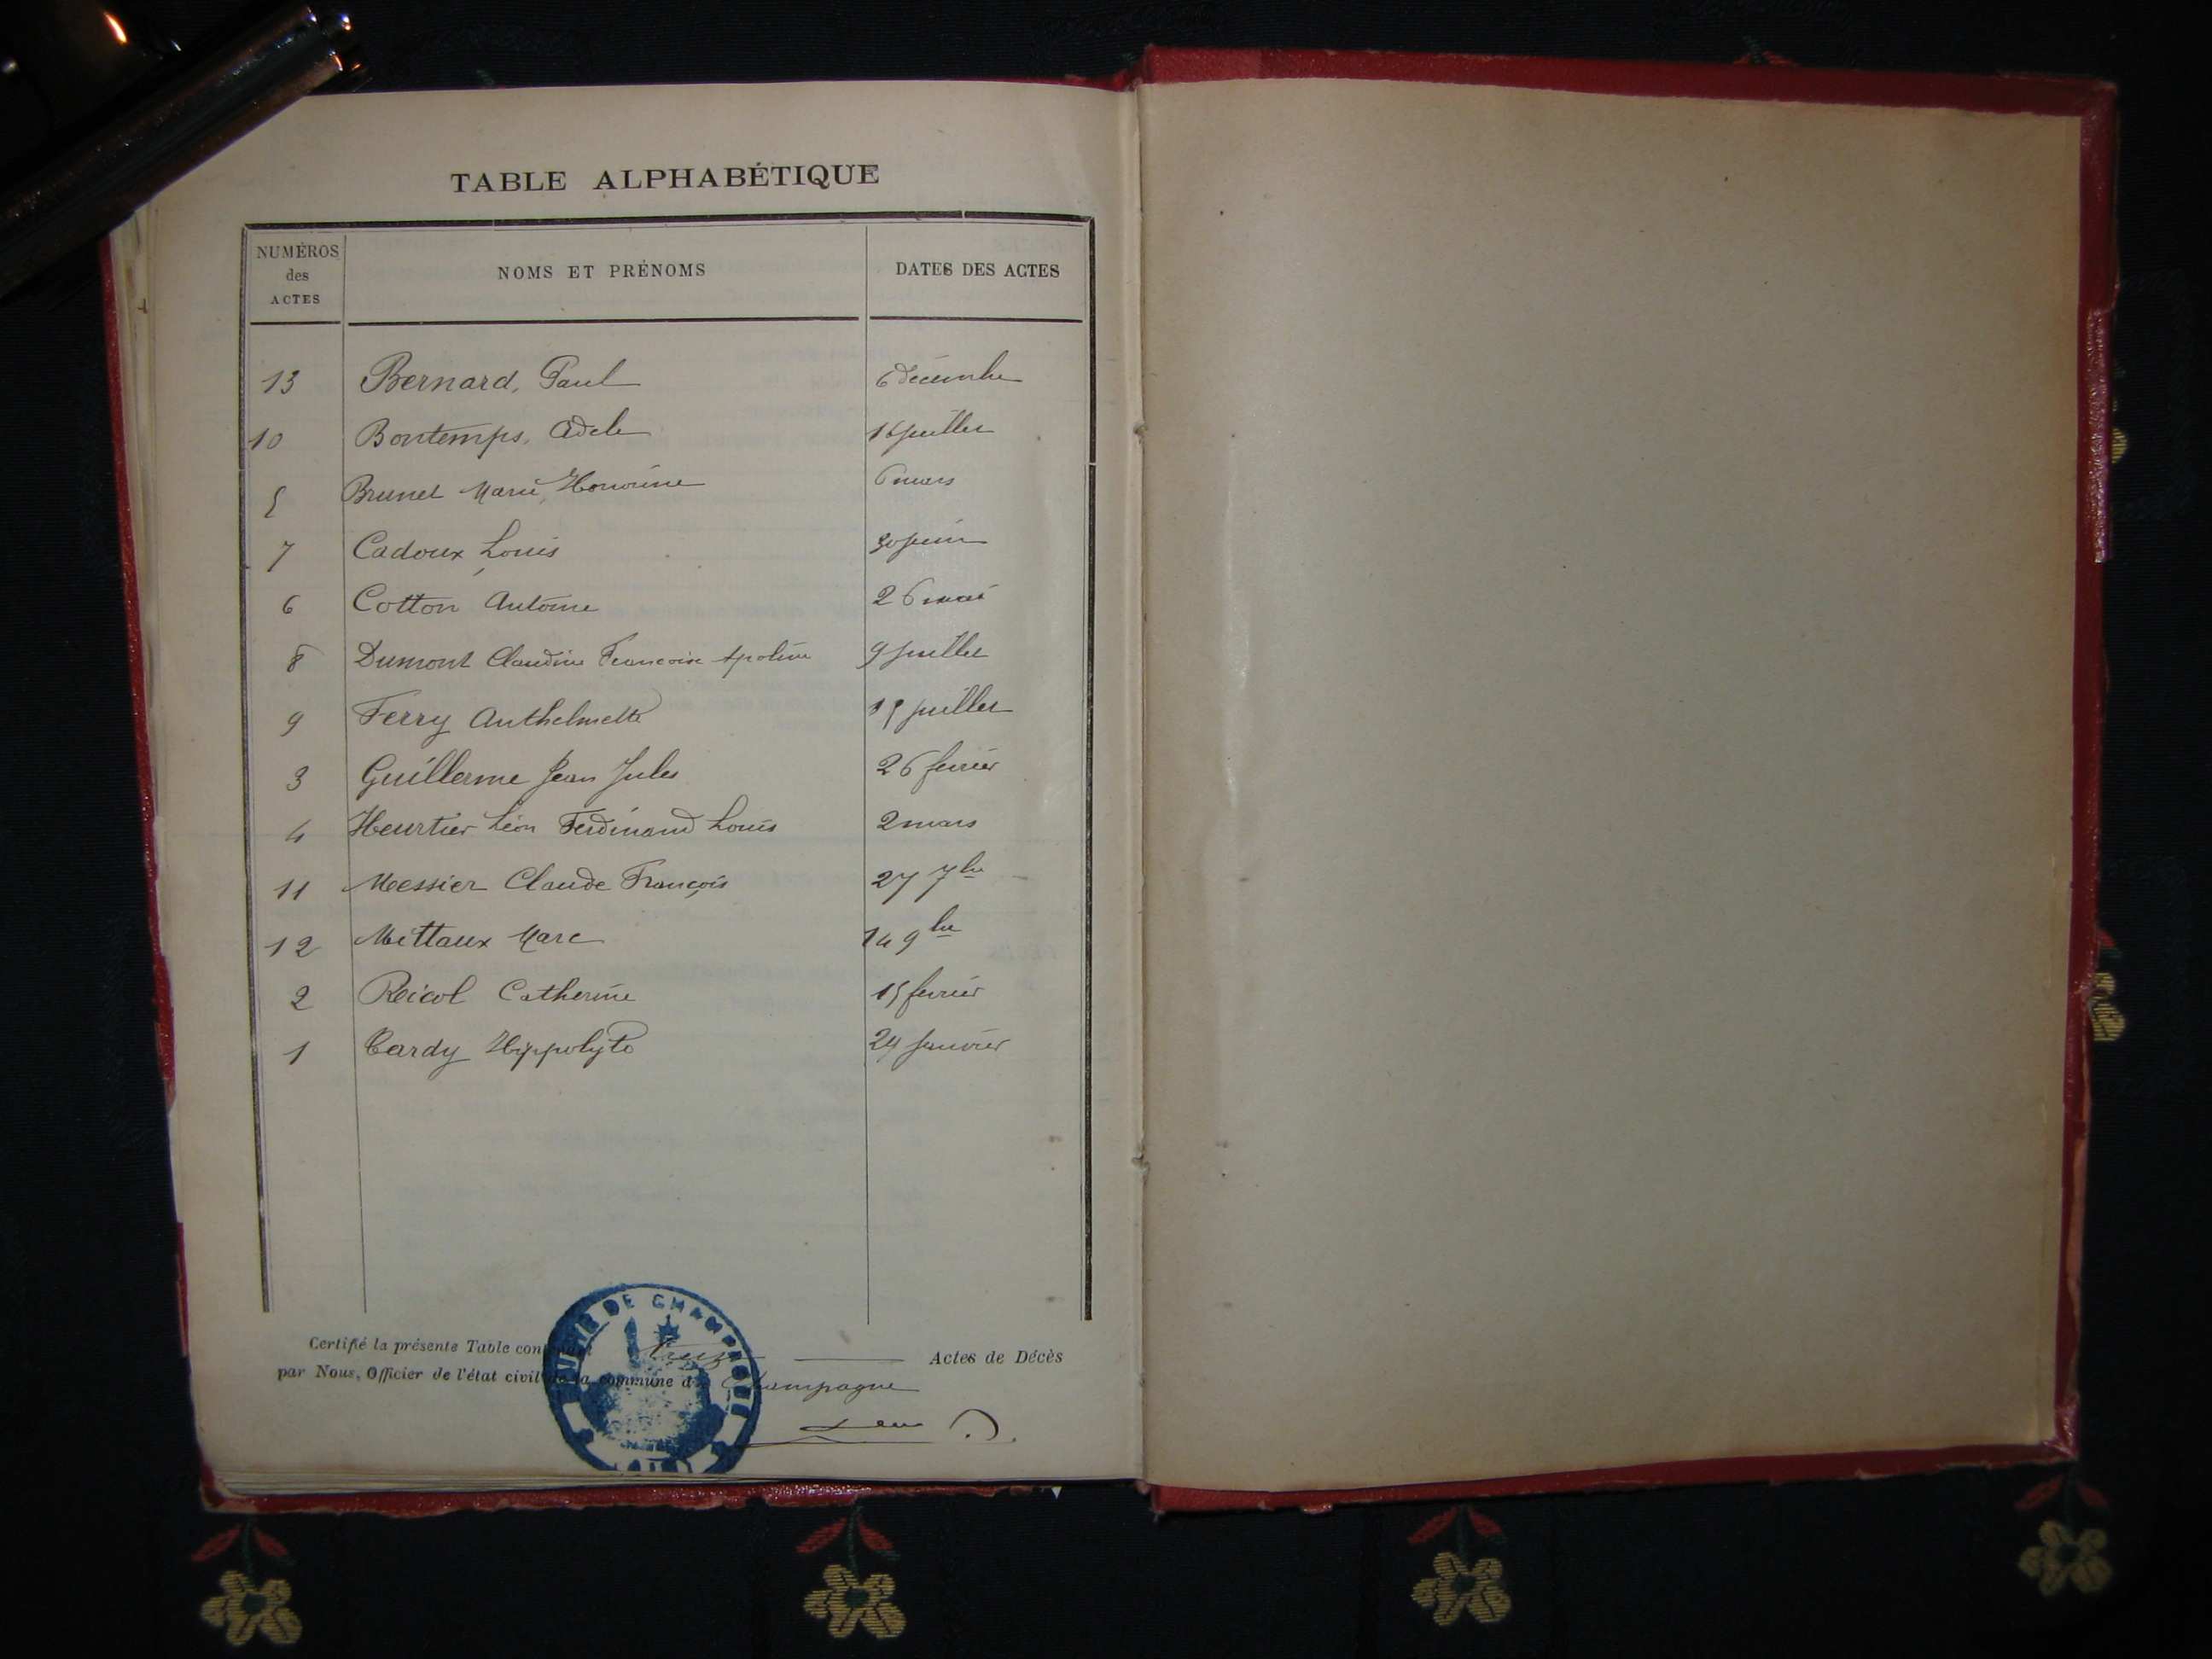 TABLE ALPHABÉTIQUE
NUMÉROS des ACTES NOMS ET PRÉNOMS DATES DES ACTES
13 Bernard, Paul 6 décembre
10 Bontemps, Adele 16 juillet
5 Brunet Marie, Honorine 6 mars
7 Cadoux Louis 30 juin
6 Cotton Antoine 26 mai
8 Dumont Claudine Francoise Apoline 9 juillet
9 Ferry Anthelmette 15 juillet
3 Guillerme Jean Jules 26 fevrier
4 Heurtier Léon Ferdinand Louis 2 mars
11 Messier Claude François 27 7bre
12 Mittaux Marc 14 9bre
2 Reicol Catherine 15 fevrier
1 Tardy Hippolyte 24 janvier
MAIRIE DE CHAMPAGNE
(AIN)
Certifié la présente Table treize Actes de Décès
par Nous, Officier de l'état civil de la commune de Champagne